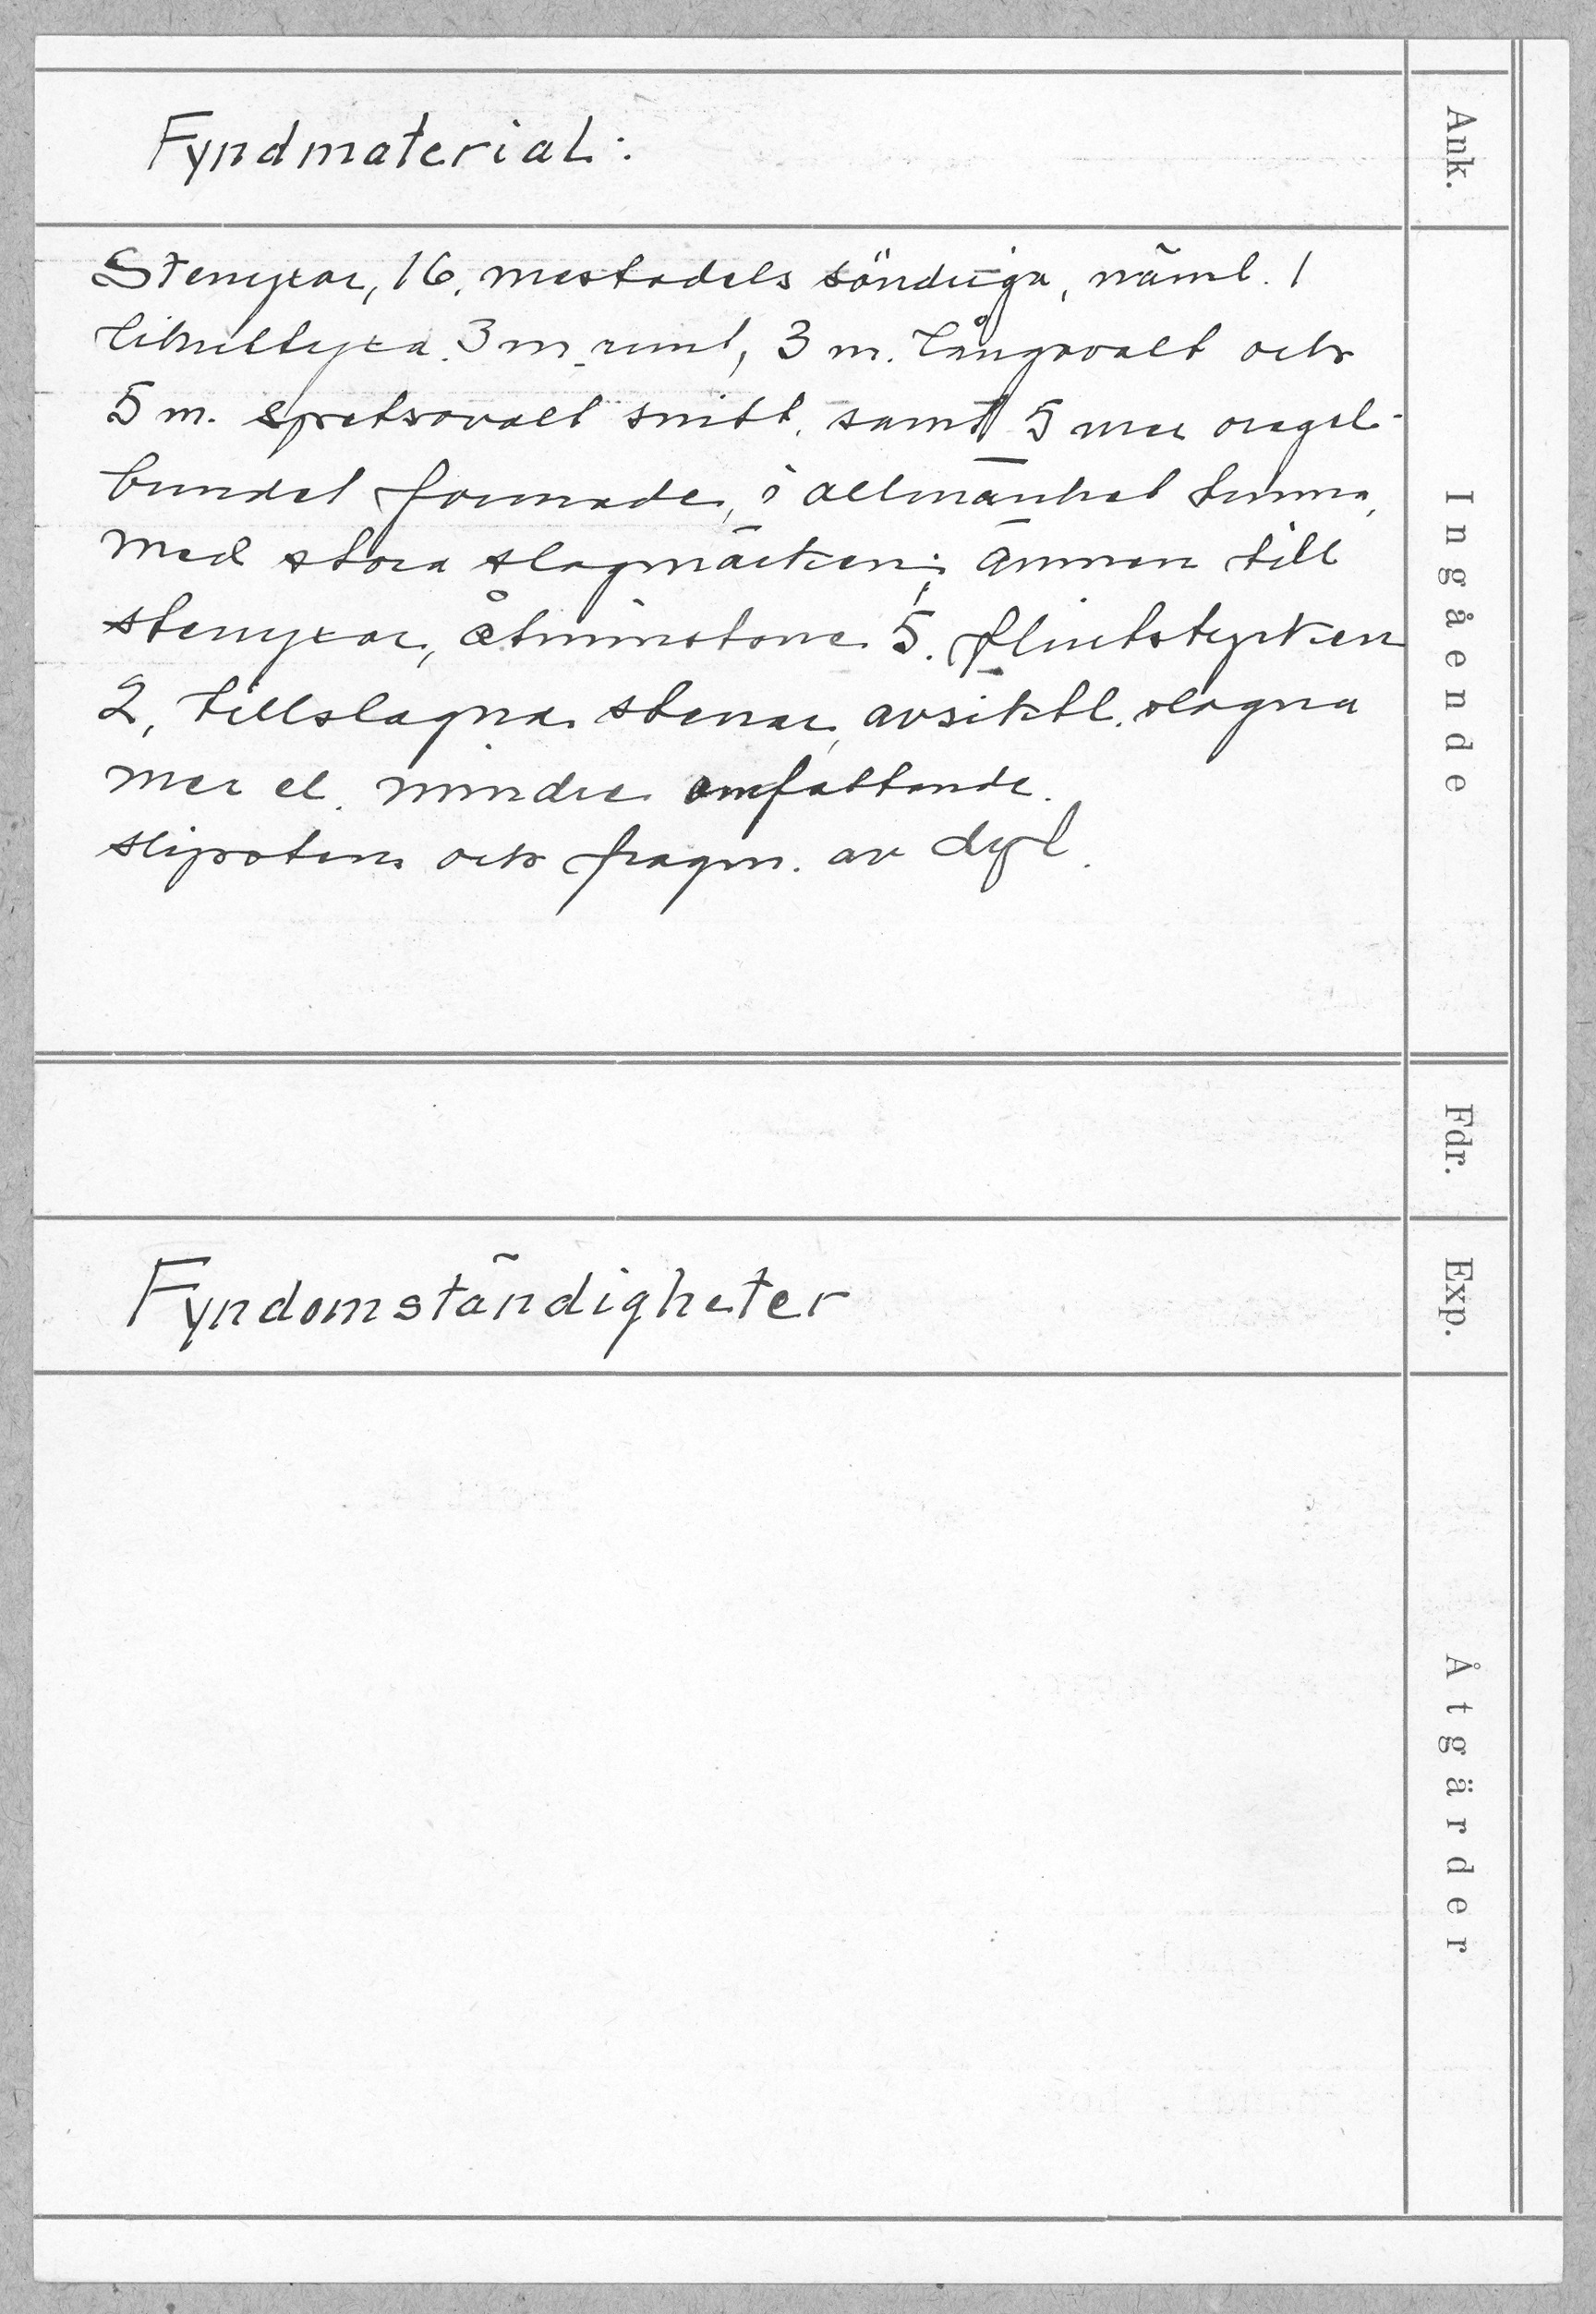 Fyndmaterial:
Ank.
Stenyxor, 16, mestadels söndriga, näml. 1
Lihultyxa. 3 m. runt, 3 m. långovalt och
5 m. spetsovalt snitt, samt 5 mer oregel-
bundet formade, i allmänhet tunna,
med stora slagmärken; ämnen till
stenyxor, åtminstone 5. flintstycken
2, tillslagna stenar, avsiktl. slagna
mer el. mindre omfattande.
slipsten och fragm. av dyl.
Ingående
Fdr.
Fyndomständigheter
Exp.
Åtgärder